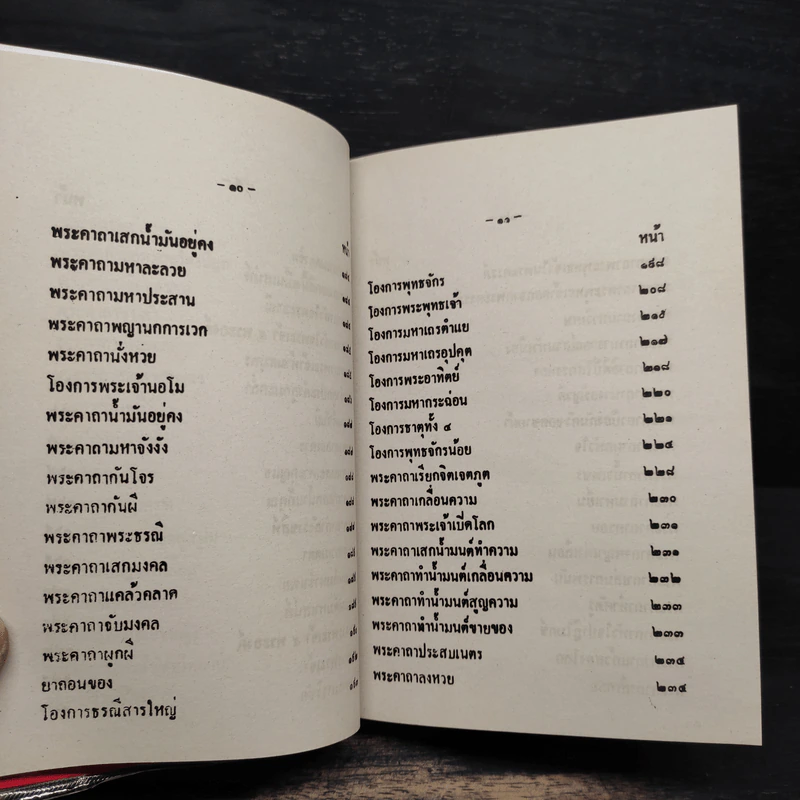 - ๑๐ -
หน้า
พระคาถาเสกน้ำมันอยู่คง
พระคาถามหาละลวย
พระคาถามหาประสาน
พระคาถาพญานกการเวก
พระคาถานั่งหวย
โองการพระเจ้านอโม
พระคาถาน้ำมันอยู่คง
พระคาถามหาจังงัง
พระคาถากันโจร
พระคาถากันผี
พระคาถาพระธรณี
พระคาถาเสกมงคล
พระคาถาแคล้วคลาด
พระคาถาจับมงคล
พระคาถาผูกผี
ยาถอนของ
โองการธรณีสารใหญ่
- ๑๑ -
หน้า
โองการพุทธจักร ๑๙๘
โองการพระพุทธเจ้า ๒๐๘
โองการมหาเถรตำแย ๒๑๕
โองการมหาเถรอุปคุต ๒๑๗
โองการพระอาทิตย์ ๒๑๘
โองการมหากระฉ่อน ๒๒๐
โองการธาตุทั้ง ๔ ๒๒๑
โองการพุทธจักรน้อย ๒๒๔
พระคาถาเรียกจิตเจตภูต ๒๒๘
พระคาถาเกลื่อนความ ๒๓๐
พระคาถาพระเจ้าเบิดโลก ๒๓๑
พระคาถาเสกน้ำมนต์ทำความ ๒๓๑
พระคาถาทำน้ำมนต์เกลื่อนความ ๒๓๒
พระคาถาทำน้ำมนต์สูญความ ๒๓๓
พระคาถาทำน้ำมนต์ขายของ ๒๓๓
พระคาถาประสบเนตร ๒๓๔
พระคาถาลงหวย ๒๓๔